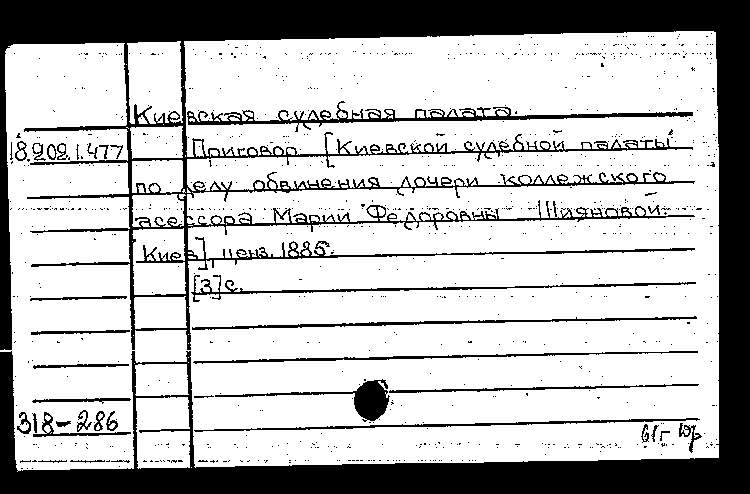 Киевская судебная палата.
18.202.1.477
Приговор [Киевской судебной палаты
по делу обвинения дочери коллежского
асессора Марии Федоровны Шияновой.
Киев], ценз. 1885.
[3] с.
318-286
61г Юр